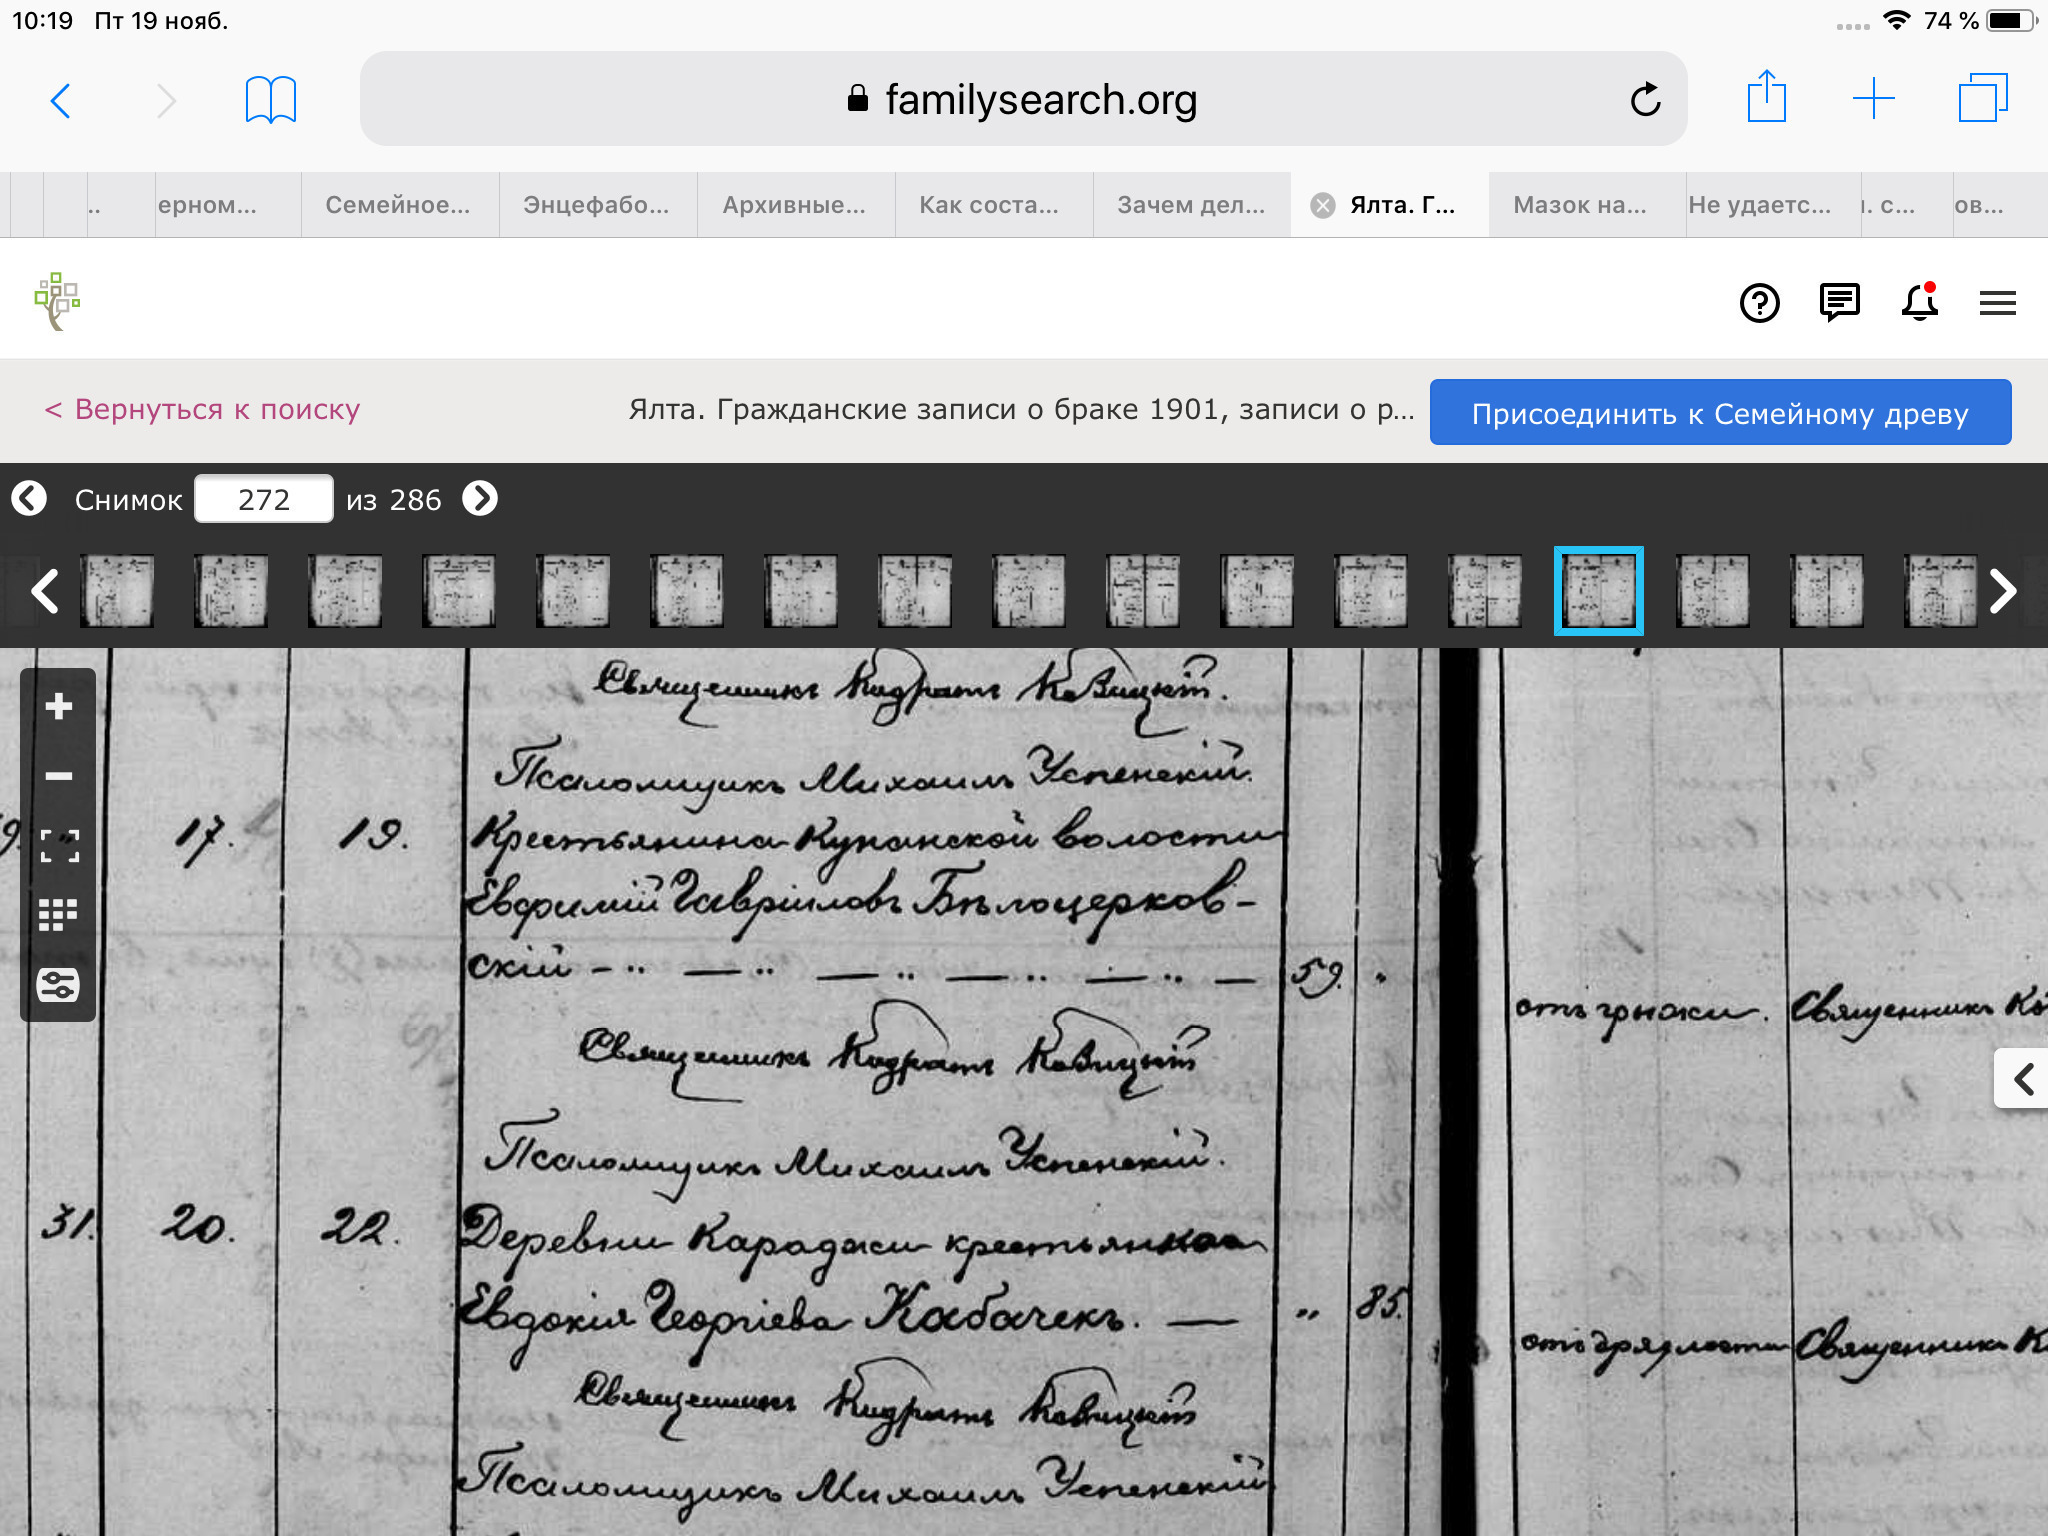 10:19 Пт 19 нояб.
74 %
familysearch.org
..
ерном...
Семейное...
Энцефабо...
Архивные...
Как соста...
Зачем дел...
Ялта. Г...
Мазок на...
Не удаетс...
. с...
ов...
< Вернуться к поиску
Ялта. Гражданские записи о браке 1901, записи о р...
Присоединить к Семейному древу
Снимок 272 из 286
Священникъ Кодратъ Ковицкій.
Псаломщикъ Михаилъ Успенскій.
9. 17. 19. Крестьянина Куманской волости
Евфимій Гавріиловъ Бѣлоцерков-
скій – „ — „ — „ — „ — „ — 59. „
отъ грыжи. Священникъ Ко
Священникъ Кодратъ Ковицкій
Псаломщикъ Михаилъ Успенскій.
31. 20. 22. Деревни Караджи крестьянка
Евдокія Георгіева Кабачекъ. — „ 85.
отъ дряхлости Священникъ К
Священникъ Кодратъ Ковицкій
Псаломщикъ Михаилъ Успенскій